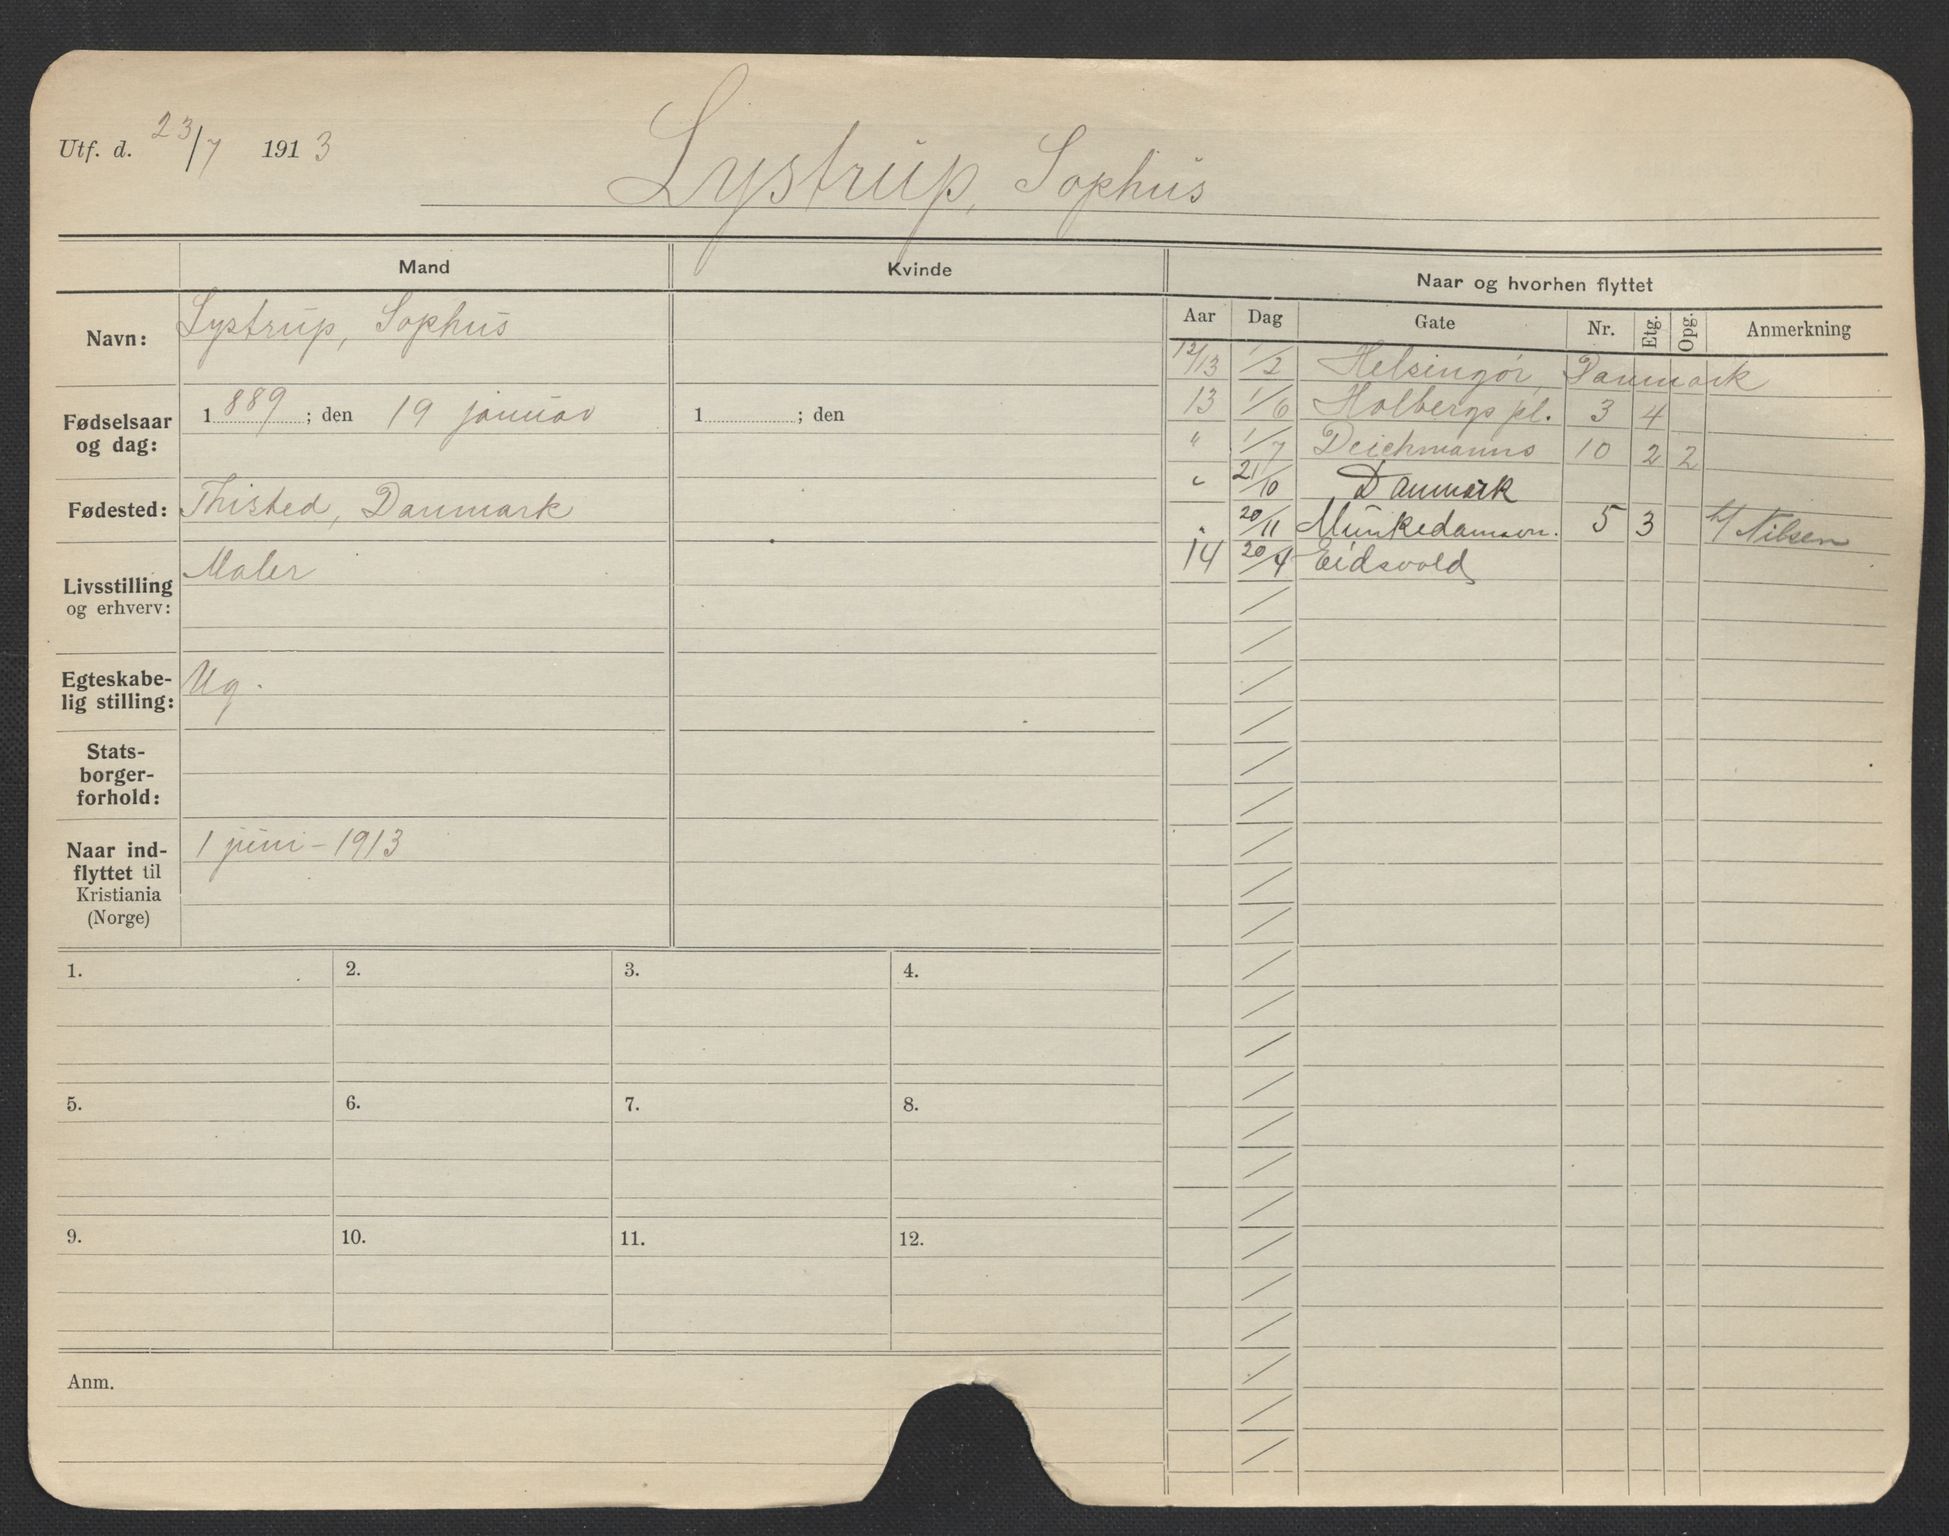 Utf. d. 23/7 1913
Lystrup, Sophus
Mand
Kvinde
Naar og hvorhen flyttet
Aar Dag Gate Nr. Etg. Opg. Anmerkning
Navn: Lystrup, Sophus
Fødselsaar og dag: 1889; den 19 januar
1 ; den
Fødested: Thisted, Danmark
Livsstilling og erhverv: Maler
Egteskabe-
lig stilling: Ug.
Stats-
borger-
forhold:
Naar ind-
flyttet til
Kristiania
(Norge)
1 juni - 1913
12/13 1/2 Helsingør, Danmark
13 1/6 Holbergs pl. 3 4
" 1/7 Deichmanns 10 2 2
" 21/10 Danmark
" 20/11 Munkedamsvn. 5 3 h/ Nilsen
14 20/4 Eidsvold
1. 2. 3. 4.
5. 6. 7. 8.
9. 10. 11. 12.
Anm.